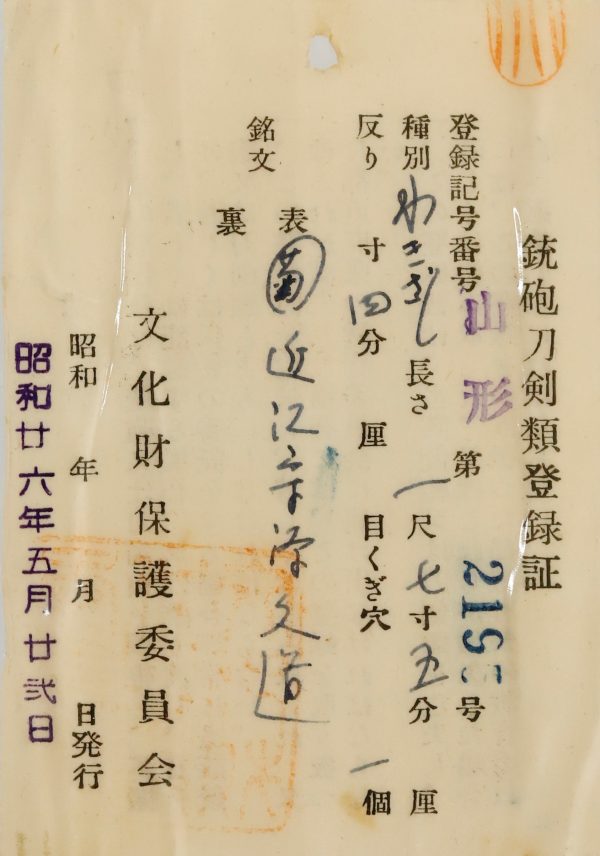 銃砲刀剣類登録証
登録記号番号 山形 第 219 号
種別 わきざし 長さ 一尺七寸五分 厘
反り 寸四分 厘 目くぎ穴 一個
銘文
表 菊 近江守源久道
裏
文化財保護委員会
昭和 年 月 日発行
昭和廿六年五月廿弐日